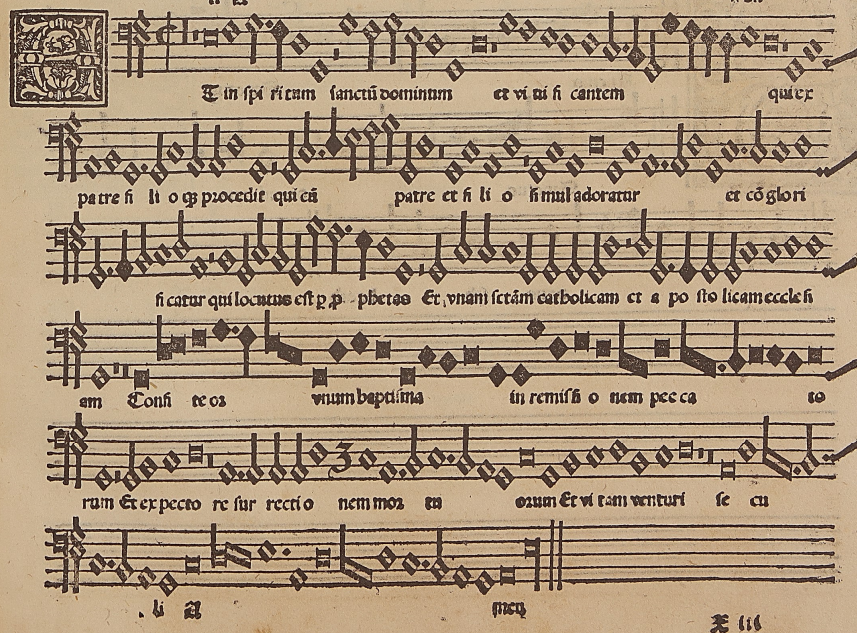 E
T in spi ritum sanctū dominum et vi ui fi cantem qui ex
patre fi li o qȝ procedit qui cū patre et fi li o simul adoratur et cō glori
fi catur qui locutus est p p phetas Et vnam sctām catholicam et a po sto licam eccle si
am Confi te or vnum baptisma in remissi o nem pec ca to
rum Et ex pecto re sur recti o nem mor tu orum Et vi tam venturi se cu
li A men